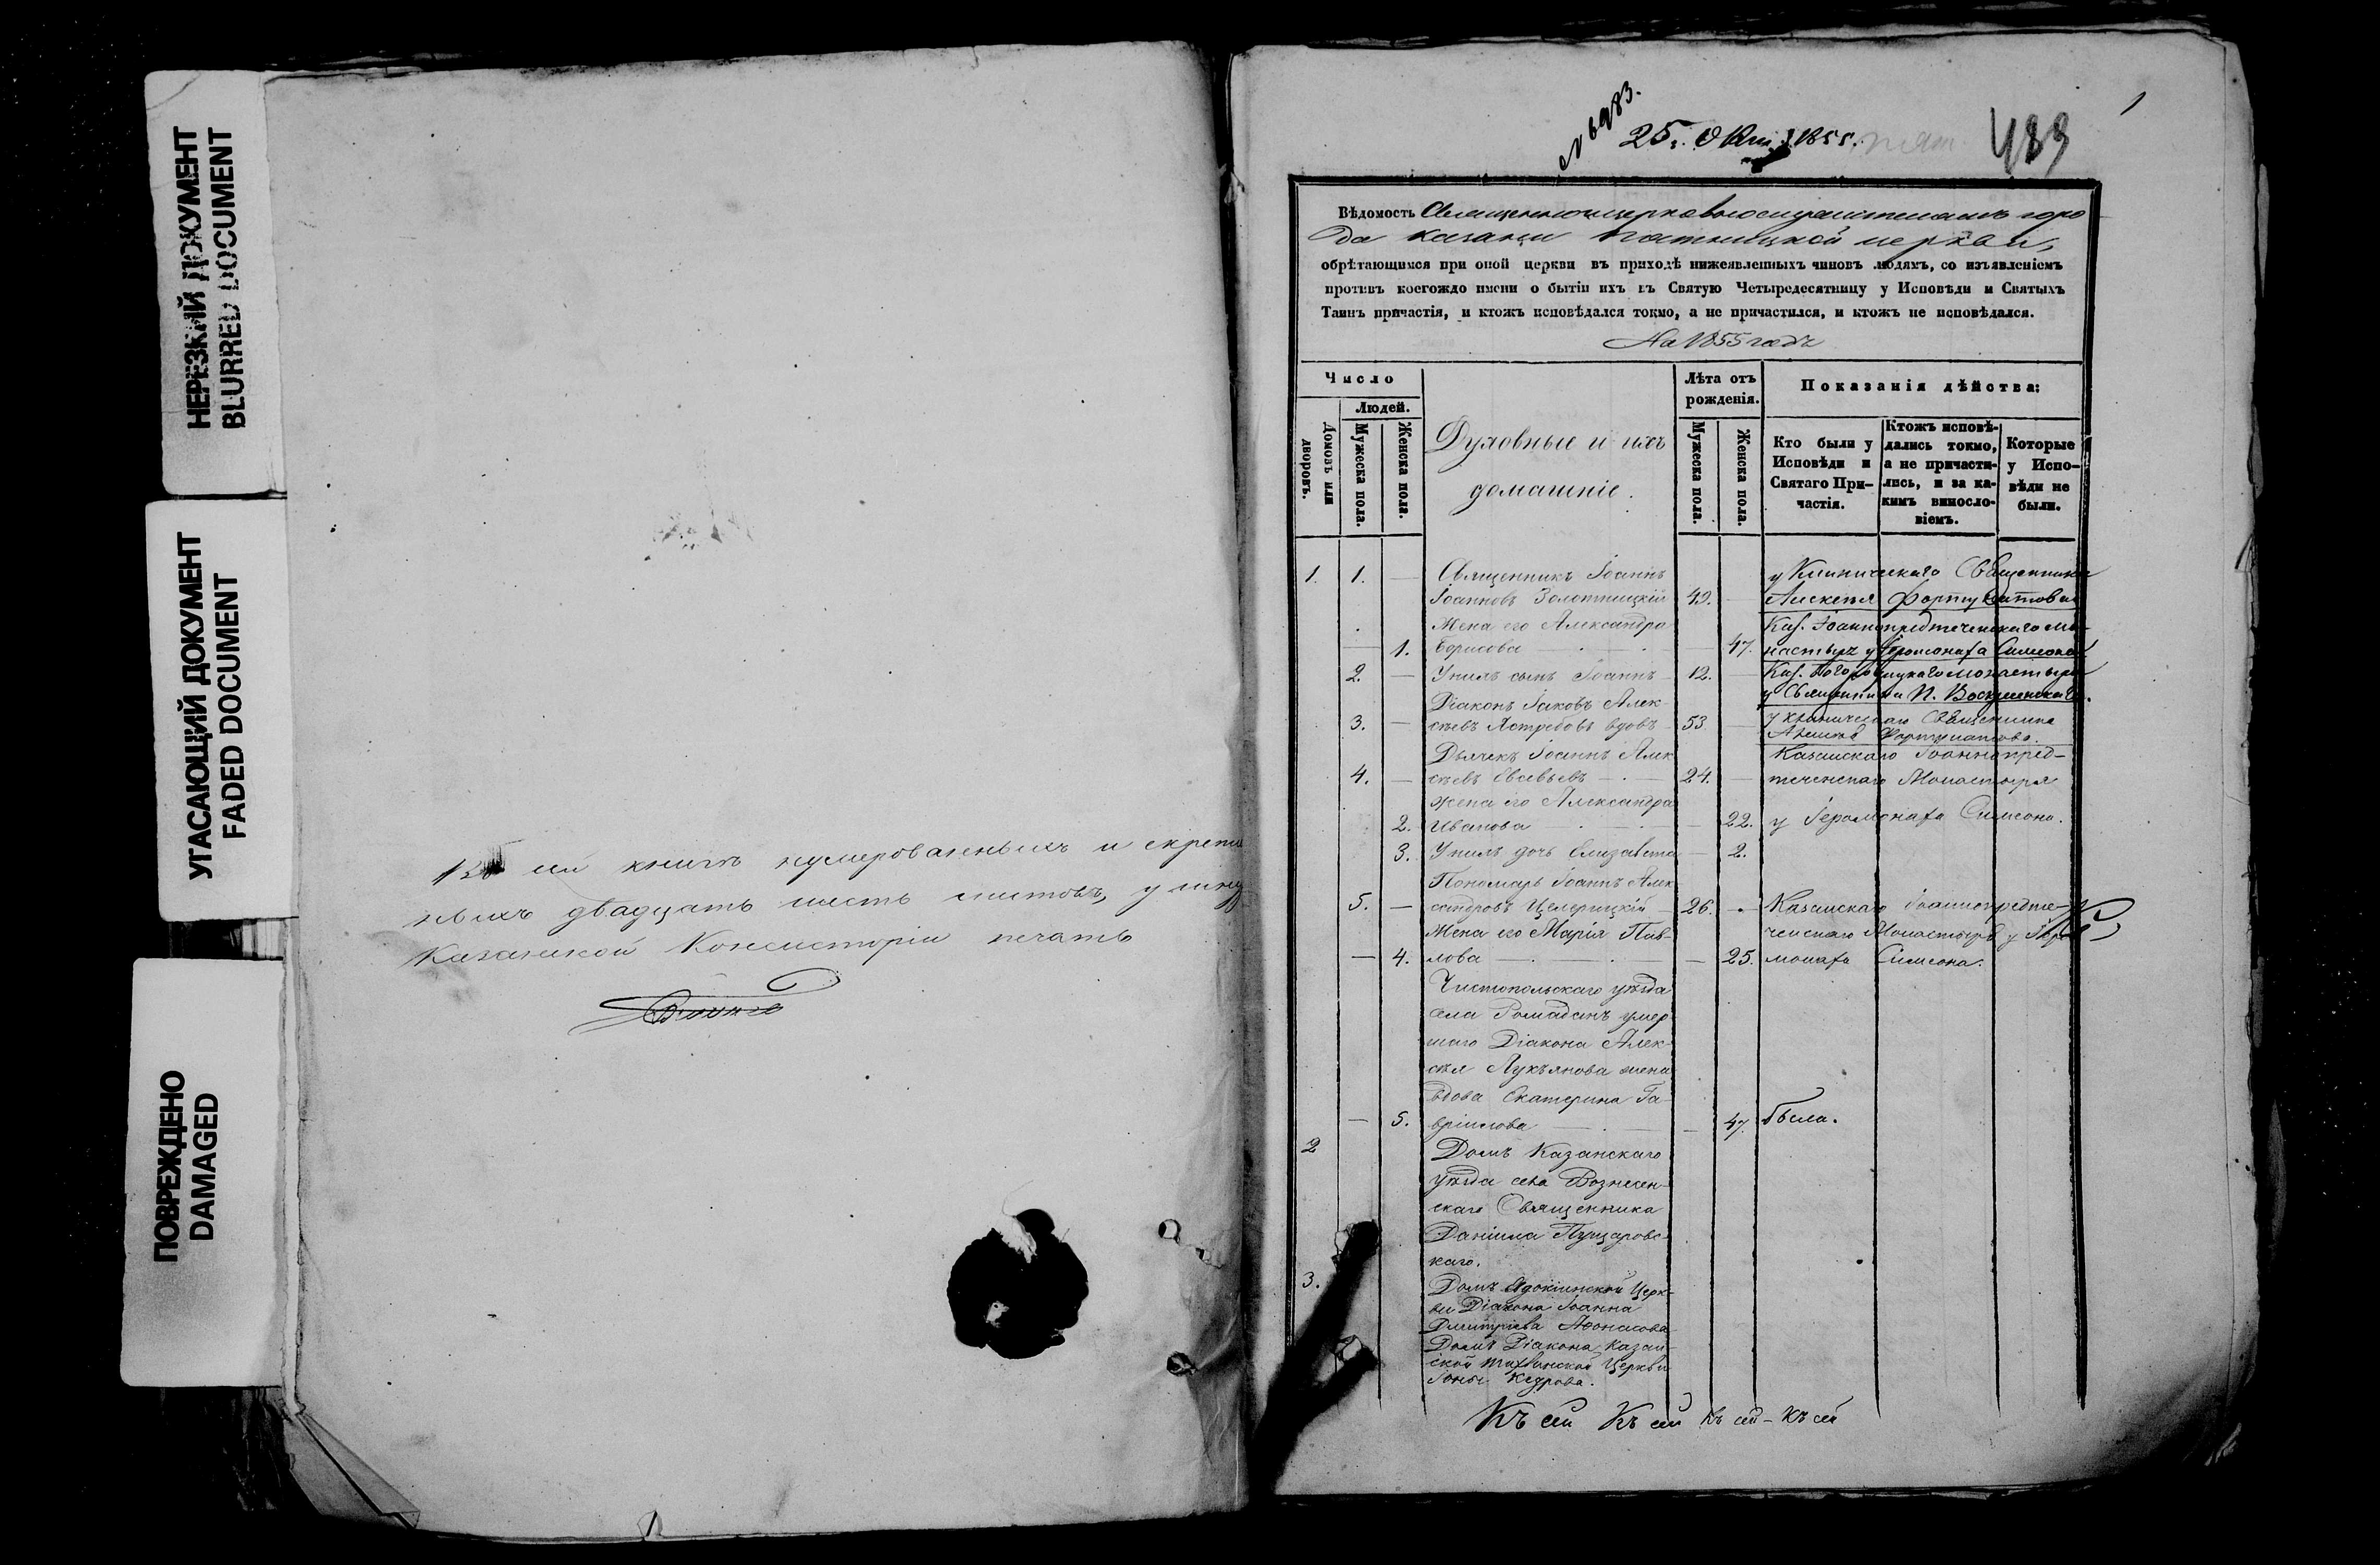 НЕРЕЗКИЙ ДОКУМЕНТ
BLURRED DOCUMENT
УГАСАЮЩИЙ ДОКУМЕНТ
FADED DOCUMENT
ПОВРЕЖДЕНО
DAMAGED
книгѣ нумерованныхъ и скрепл
ныхъ двадцать шесть листовъ, у шну
Казанской Консисторіи печать
1
№ 6983.
25. Окт. 1855.
489
Вѣдомость Священноцерковнослужителямъ горо
да Казани Пятницкой церкви,
обрѣтающимся при оной церкви въ приходѣ нижеявленныхъ чиновъ людямъ, со изъявленіемъ
противъ коегождо имени о бытіи ихъ въ Святую Четыредесятницу у Исповѣди и Святыхъ
Таинъ причастія, и ктожъ исповѣдался токмо, а не причастился, и ктожъ не исповѣдался.
На 1855 годъ
Число
Людей.
Домовъ или дворовъ.
Мужеска пола.
Женска пола.
Духовные и ихъ
домашніе.
Лѣта отъ
рожденія.
Мужеска пола.
Женска пола.
Показанія дѣйства:
Кто были у
Исповѣди и
Святаго При-
частія.
Ктожъ исповѣ-
дались токмо,
а не причасти-
лись, и за ка-
кимъ винносло-
віемъ.
Которые
у Испо-
вѣди не
были.
1. 1. — Священникъ Іоаннъ у Клиническаго Священника
Іоанновъ Золотницкій 49. — Алексѣя Фортунатова
Жена его Александра Каз. Іоаннопредтеченскаго мо-
— 1. Борисова — 47. настыря у Іеромонаха Симеона
2. — У нихъ сынъ Іоаннъ 12. — Каз. Богородицкаго монастыря
у Священника П. Воскресенскаго.
Діаконъ Іаковъ Алек- у Клиническаго Священника
3. — сѣевъ Ястребовъ вдовъ 53 — Алексѣя Фортунатова.
Дьячекъ Іоаннъ Алек Казанскаго Іоаннопред-
4. — сѣевъ Евсевьевъ — 24. — теченскаго Монастыря
жена его Александра
2. Иванова — 22. у Іеромонаха Симеона.
3. У нихъ дочь Елизавета — 2.
Пономарь Іоаннъ Алек
5. — сандровъ Целерицкій 26. — Казанскаго Іоаннопредте-
Жена его Марія Пав- ченскаго Монастыря у Іеро
— 4. лова — 25. монаха Симеона.
Чистопольскаго уѣзда
села Ромаданъ умер
шаго Діакона Алек-
сѣя Лукьянова жена
вдова Екатерина Га-
— 5. вріилова — 47. была.
2 Домъ Казанскаго
уѣзда села Вознесен-
скаго Священника
Даніила Пуцаровс-
каго.
3. Домъ Евдокіинской Церк-
ви Діакона Іоанна
Дмитріева Афонасова
Домъ Діакона Казан-
ской Тихвинской Церкви
Іоны Кедрова.
Къ сей Къ сей Къ сей - Къ сей